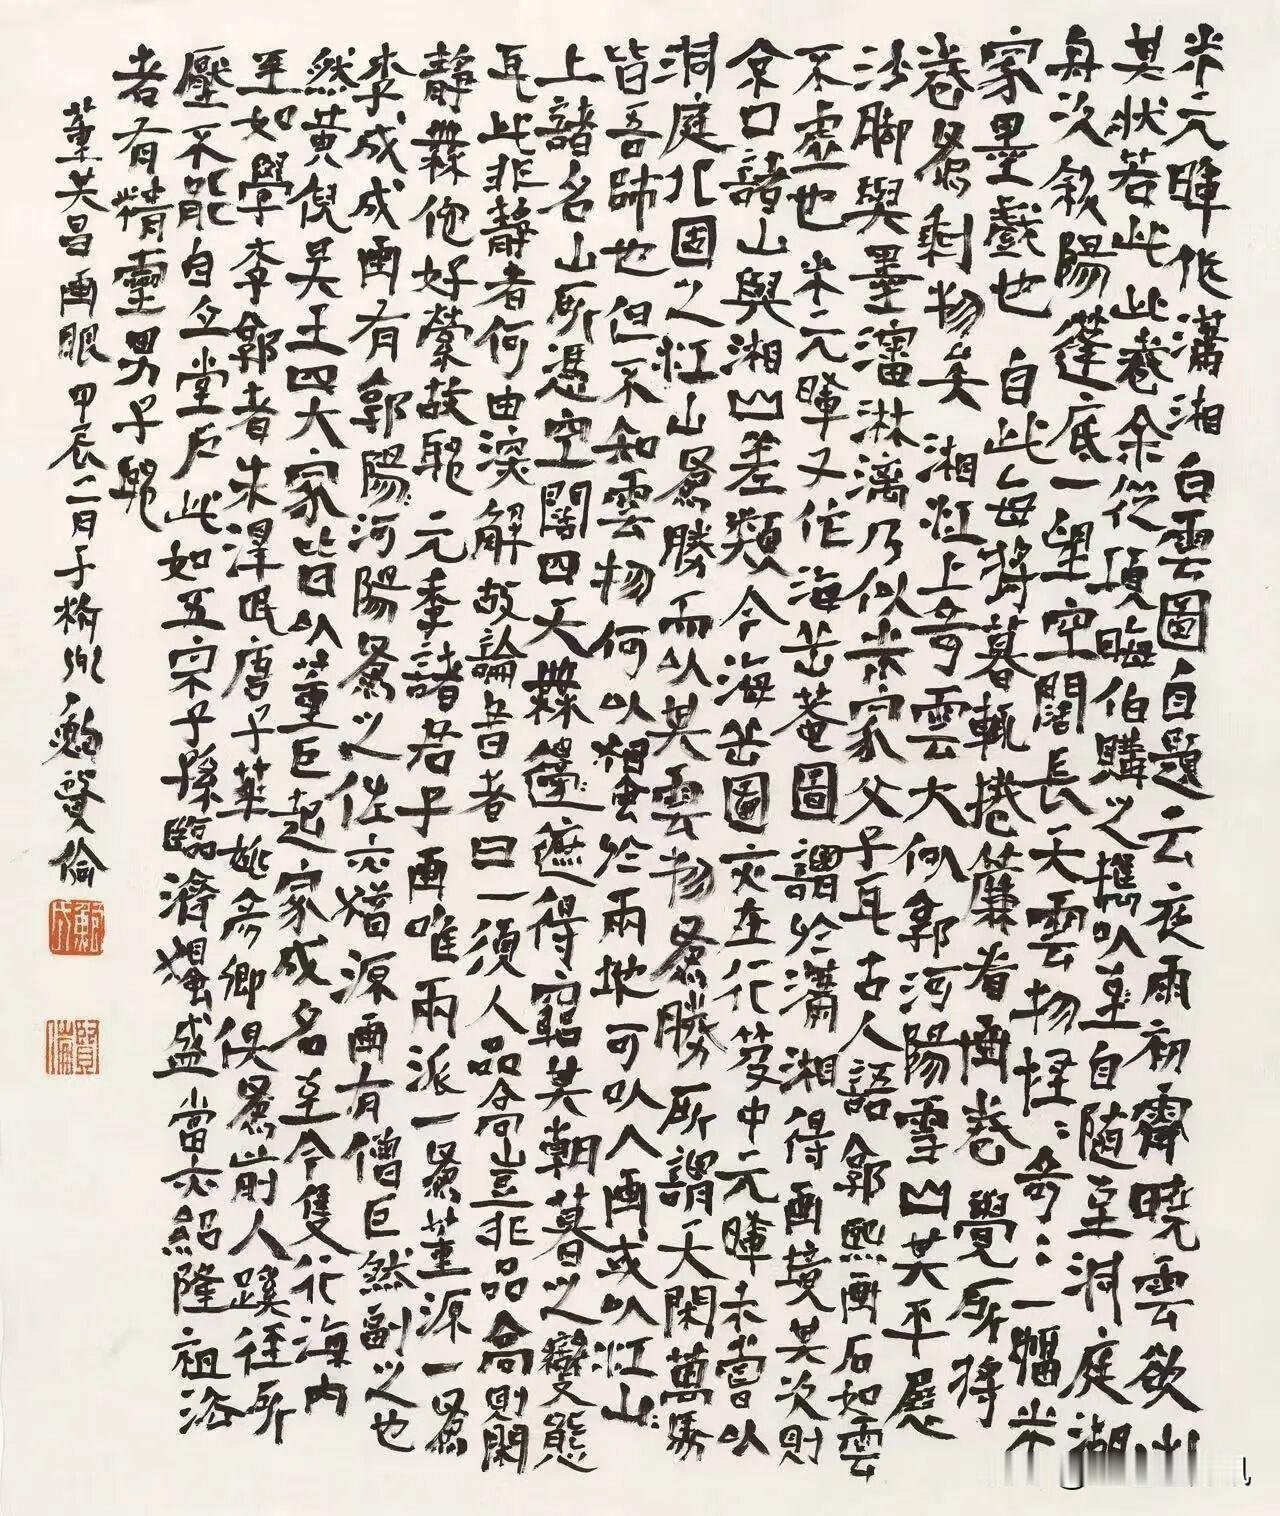 米元暉作瀟湘白雲圖自題云夜雨初霽曉雲欲出
其狀若此此卷余從項晦伯購之攜以至自隨至洞庭湖
舟次斜陽蓬底一望空闊長天雲物怪怪奇奇一幅米
家墨戲也自此每將暮輒捲簾看畫卷覺所將
卷為剩物矣湘江上奇雲大似郭河陽雪山其平展
沙腳與墨瀋淋漓乃似米家父子耳古人語郭熙畫石如雲
不虛也米元暉又作海岳菴圖謂於瀟湘得畫境其次則
京口諸山與湘山差類今海岳圖亦在行笈中元暉未嘗以
洞庭北固之江山為勝而以其雲物為勝所謂天閑萬馬
皆吾師也但不知雲物何以獨於兩地可以入畫或以江山
上諸名山所憑空闊四天無籧篨遮得窮其朝暮之變態
耳此非靜者何由深解故論者曰一須人品高豈非品高則閑
靜無他好縈故耶元季諸君子畫唯兩派一為董源一為
李成成畫有郭河陽為之佐亦猶源畫有僧巨然副之也
然黃倪吳王四大家皆以董巨起家成名至今隻行海內
至如學李郭者朱澤民唐子華姚彥卿俱為前人蹊徑所
壓不能自立堂戶此如五宗子孫臨濟獨盛當亦紹隆祖法
者有精靈男子耶
董其昌畫眼甲辰二月于